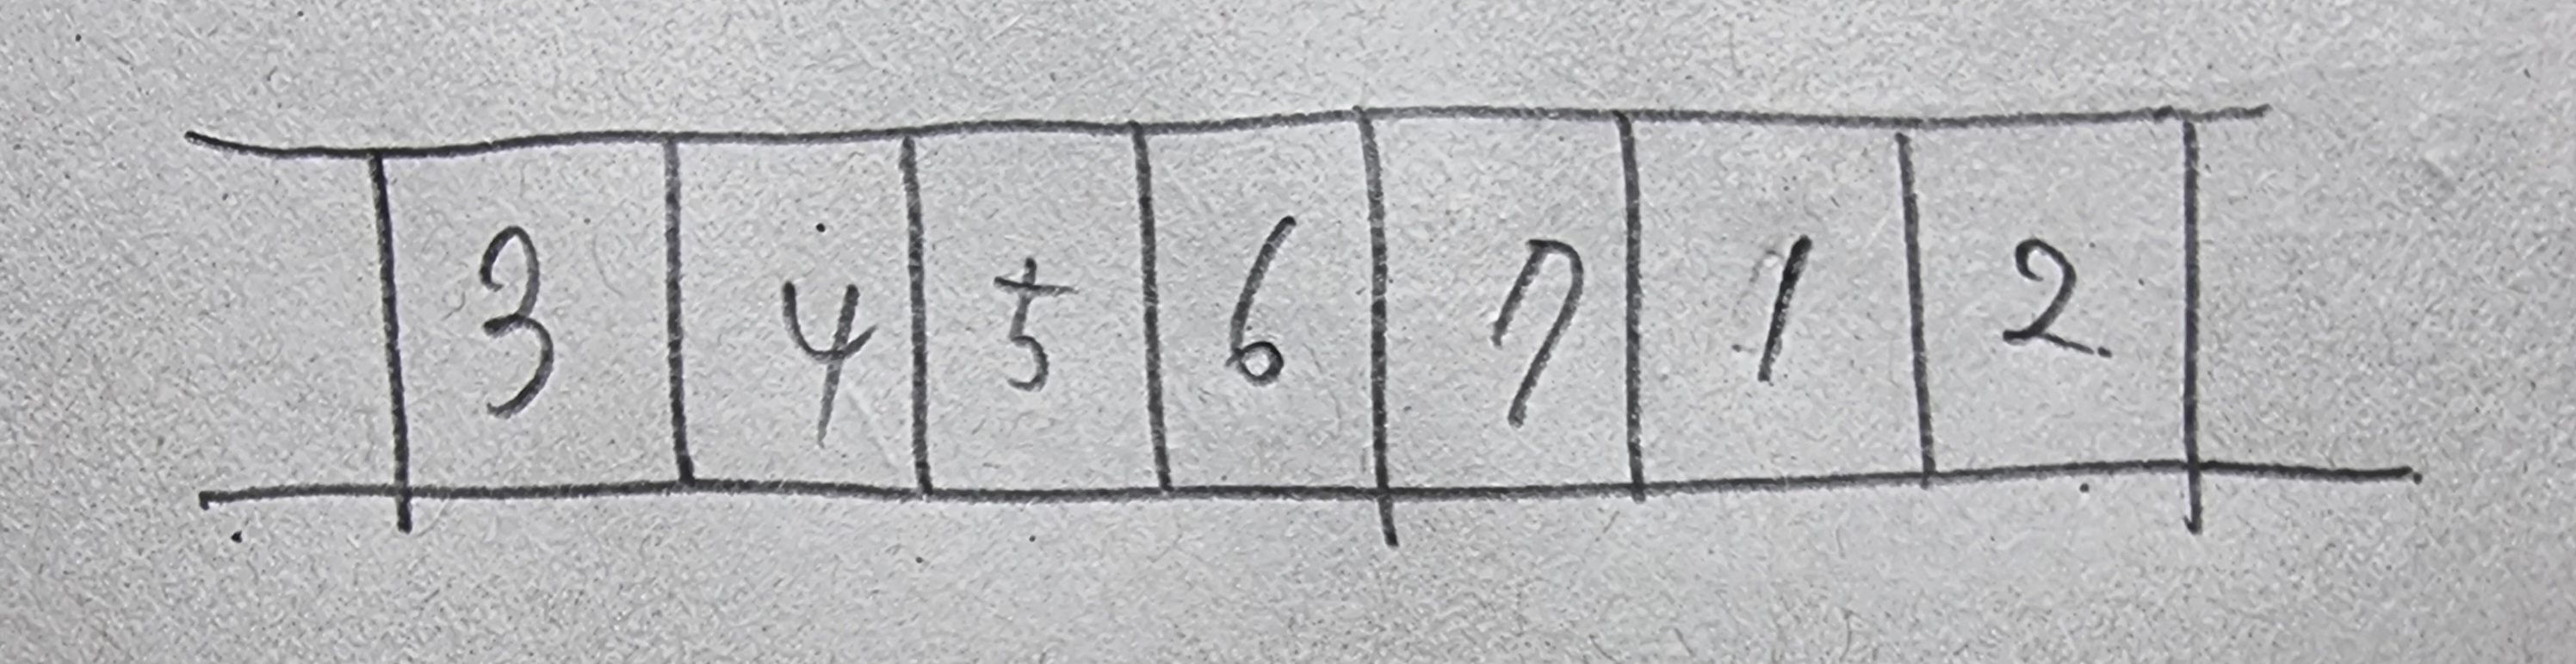 3 4 5 6 7 1 2